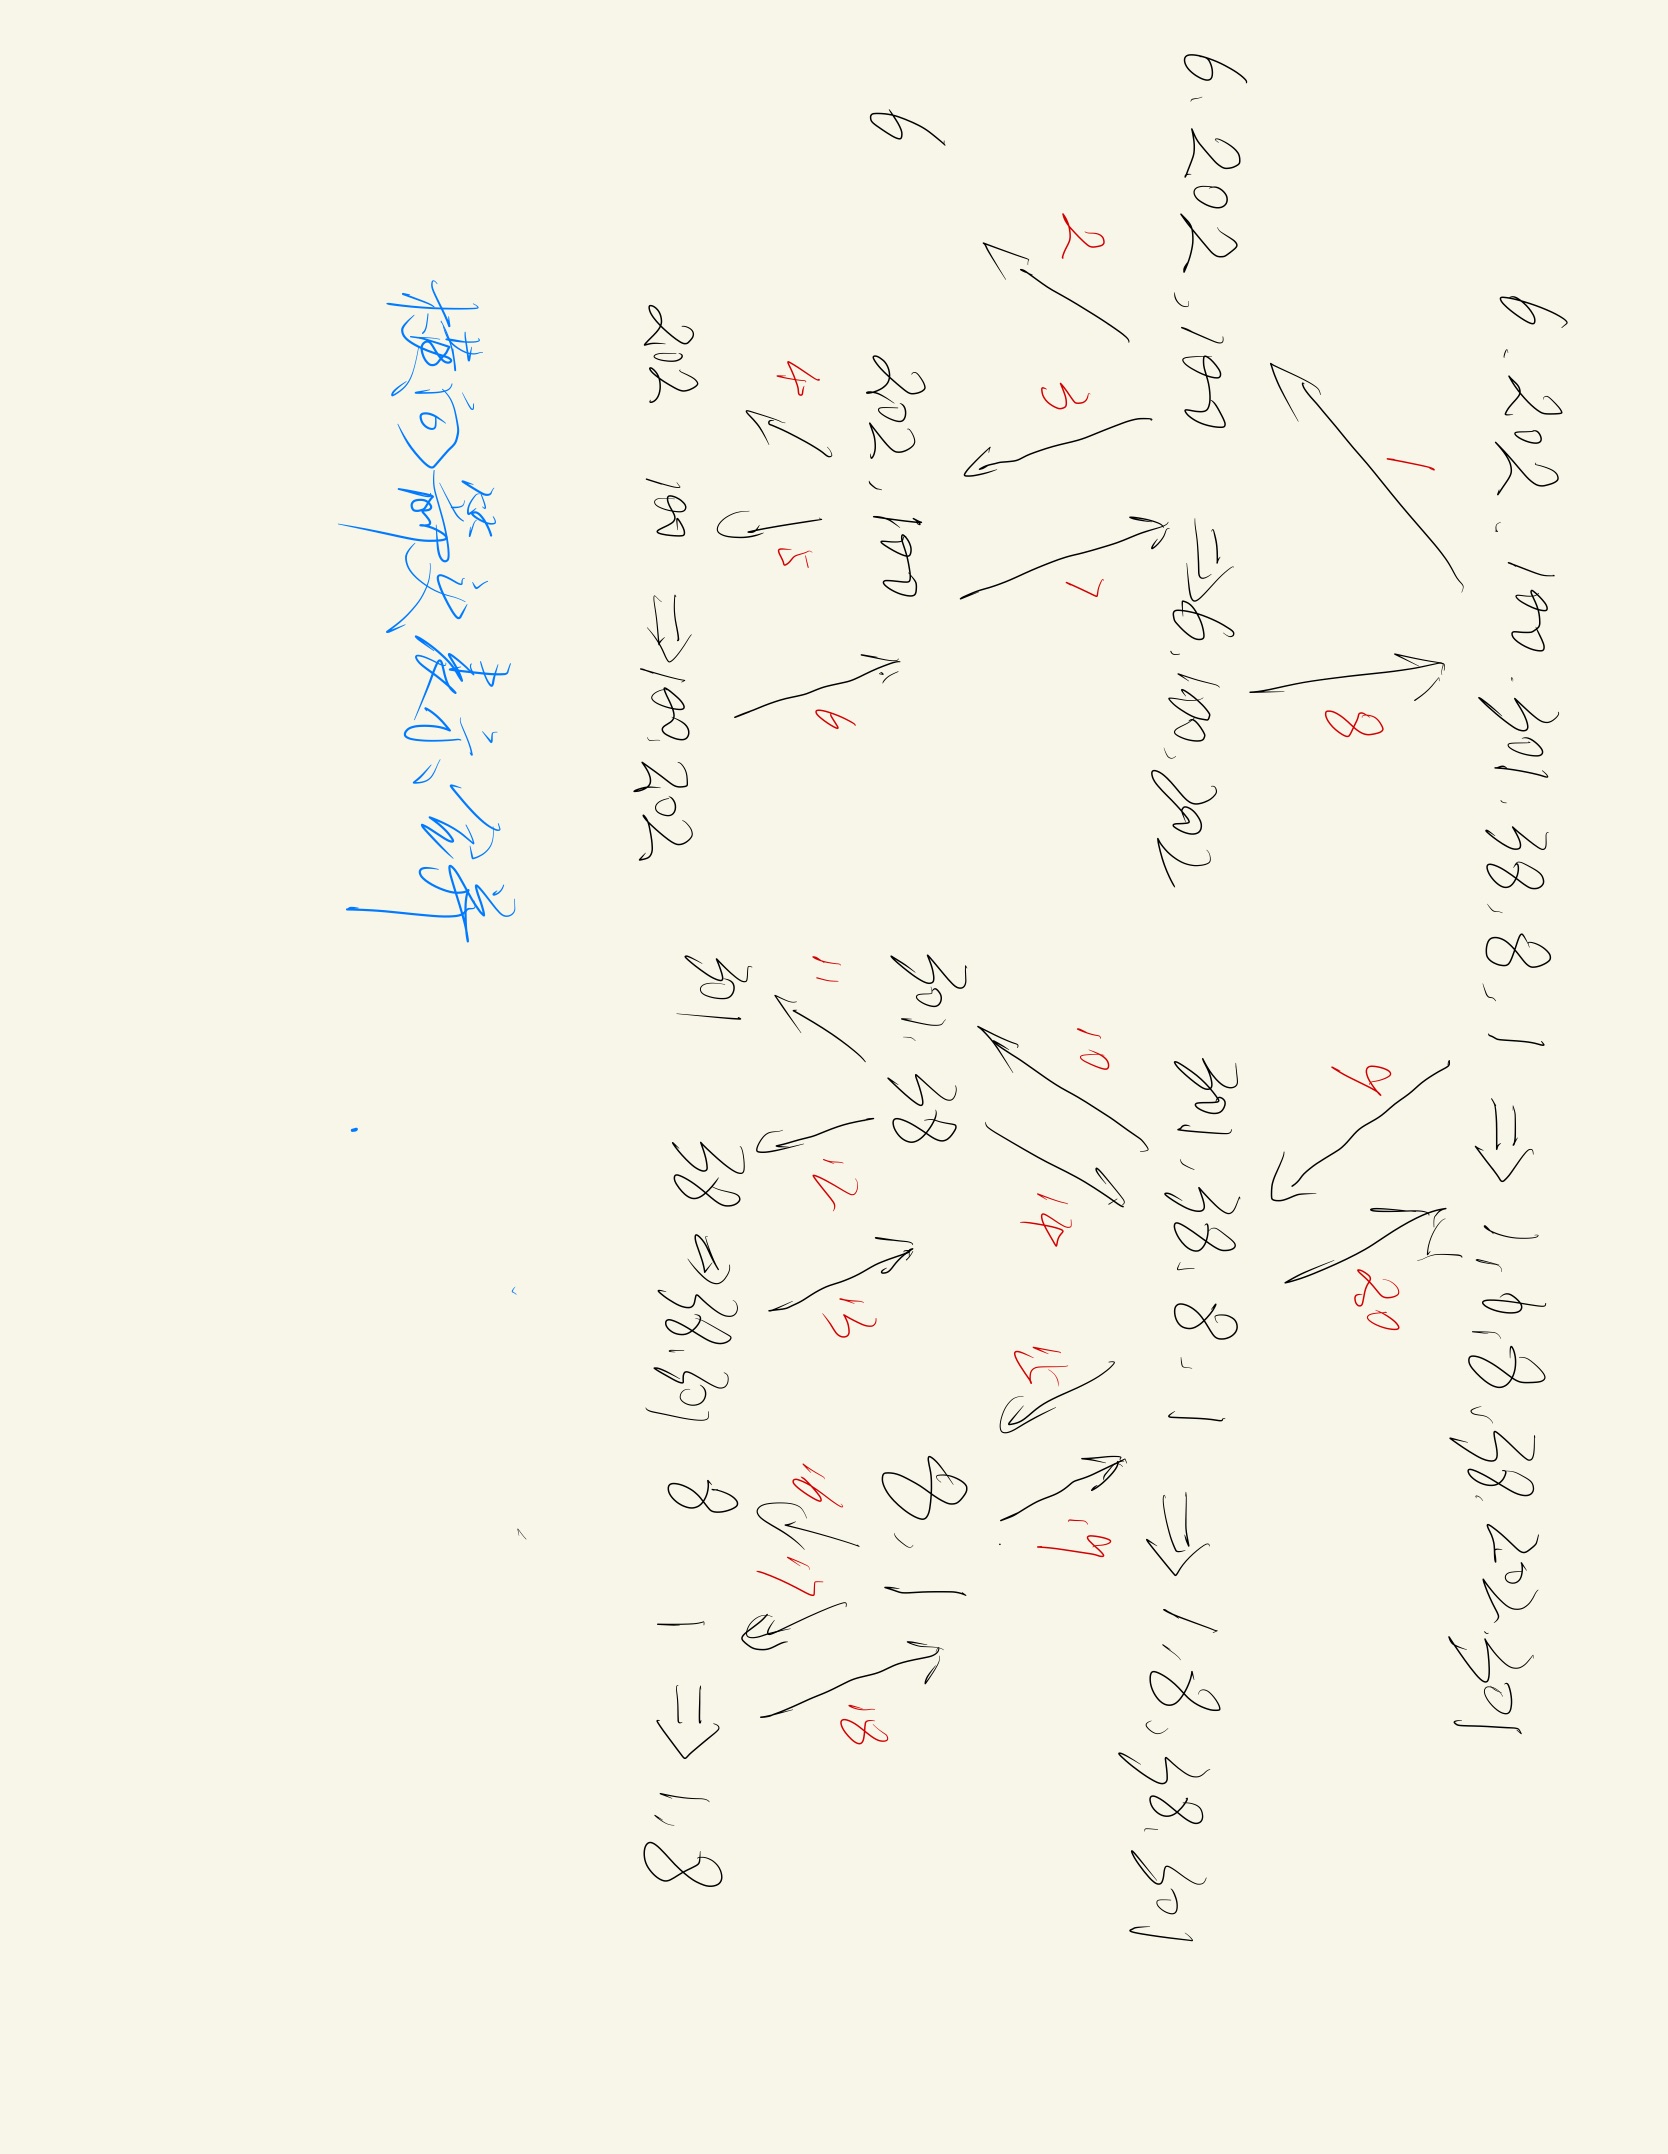 6.202.100.301.38,8,1 ⇒ 1,6,8,38,202,301
1 8 9 20
6.202,100 ⇒ 6,100,202 301,38,8,1 ⇒ 1,8,38,301
2 3 7 10 14 15 19
6 202,100 301,38 8,1
4 5 6 11 12 13 16 17 18
202 100 ⇒ 100,202 301 38 ⇒ 38,301 8 1 ⇒ 1,8
横向箭头表示合并